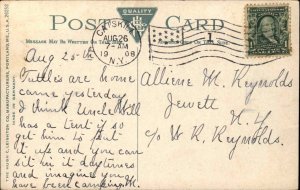 POST CARD
QUALITY
MESSAGE MAY BE WRITTEN ON THIS SIDE
CATSKILL
AUG 26
2-AM
1908
N.Y.
1
THE HUGH C. LEIGHTON CO., MANUFACTURERS, PORTLAND, ME., U.S.A.
Aug 25-08
Tuttles are home
came yesterday
I think Uncle Will
has a tent if so
get him to put
it up and you can
sit in it daytimes
and imagine you
have been camping. M.
Alliene M. Reynolds
Jewett
N.Y.
c/o W. R. Reynolds.